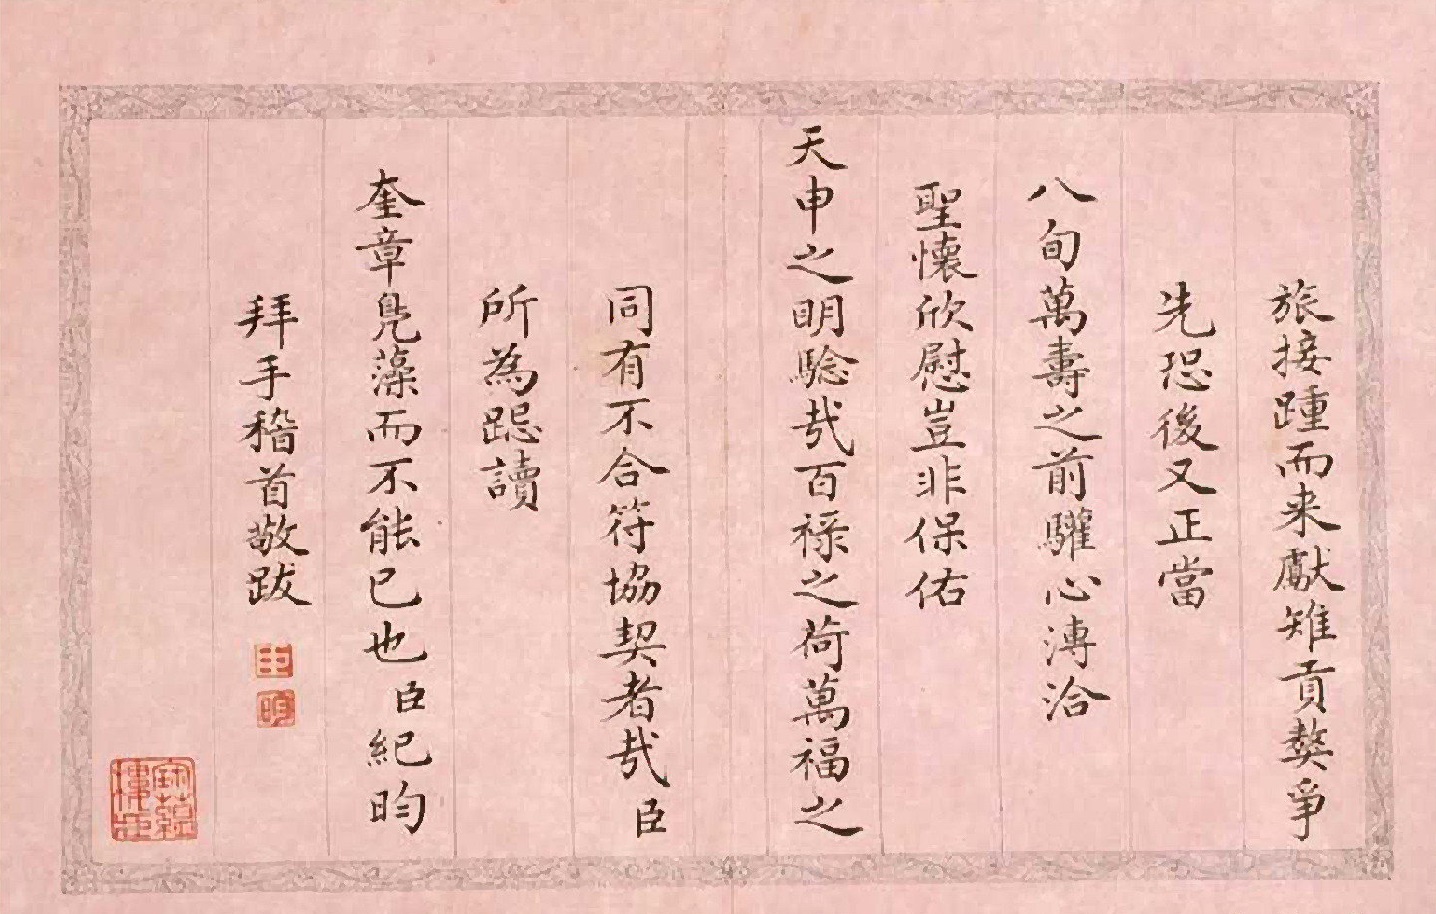 旅接踵而来獻雉貢獒爭
先恐後又正當
八旬萬壽之前驩心溥洽
聖懷欣慰豈非保佑
天申之明驗哉百祿之荷萬福之
同有不合符協契者哉臣
所為跽讀
奎章鳬藻而不能已也臣紀昀
拜手稽首敬跋
臣
昀